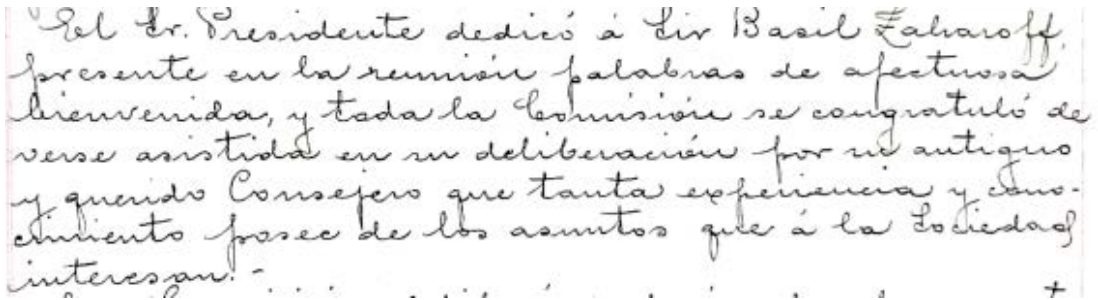 El Sr. Presidente dedicó á Sir Basil Zaharoff,
presente en la reunión palabras de afectuosa
bienvenida, y toda la Comisión se congratuló de
verse asistida en su deliberación por su antiguo
y querido Consejero que tanta experiencia y cono-
cimiento posee de los asuntos que á la Sociedad
interesan.-